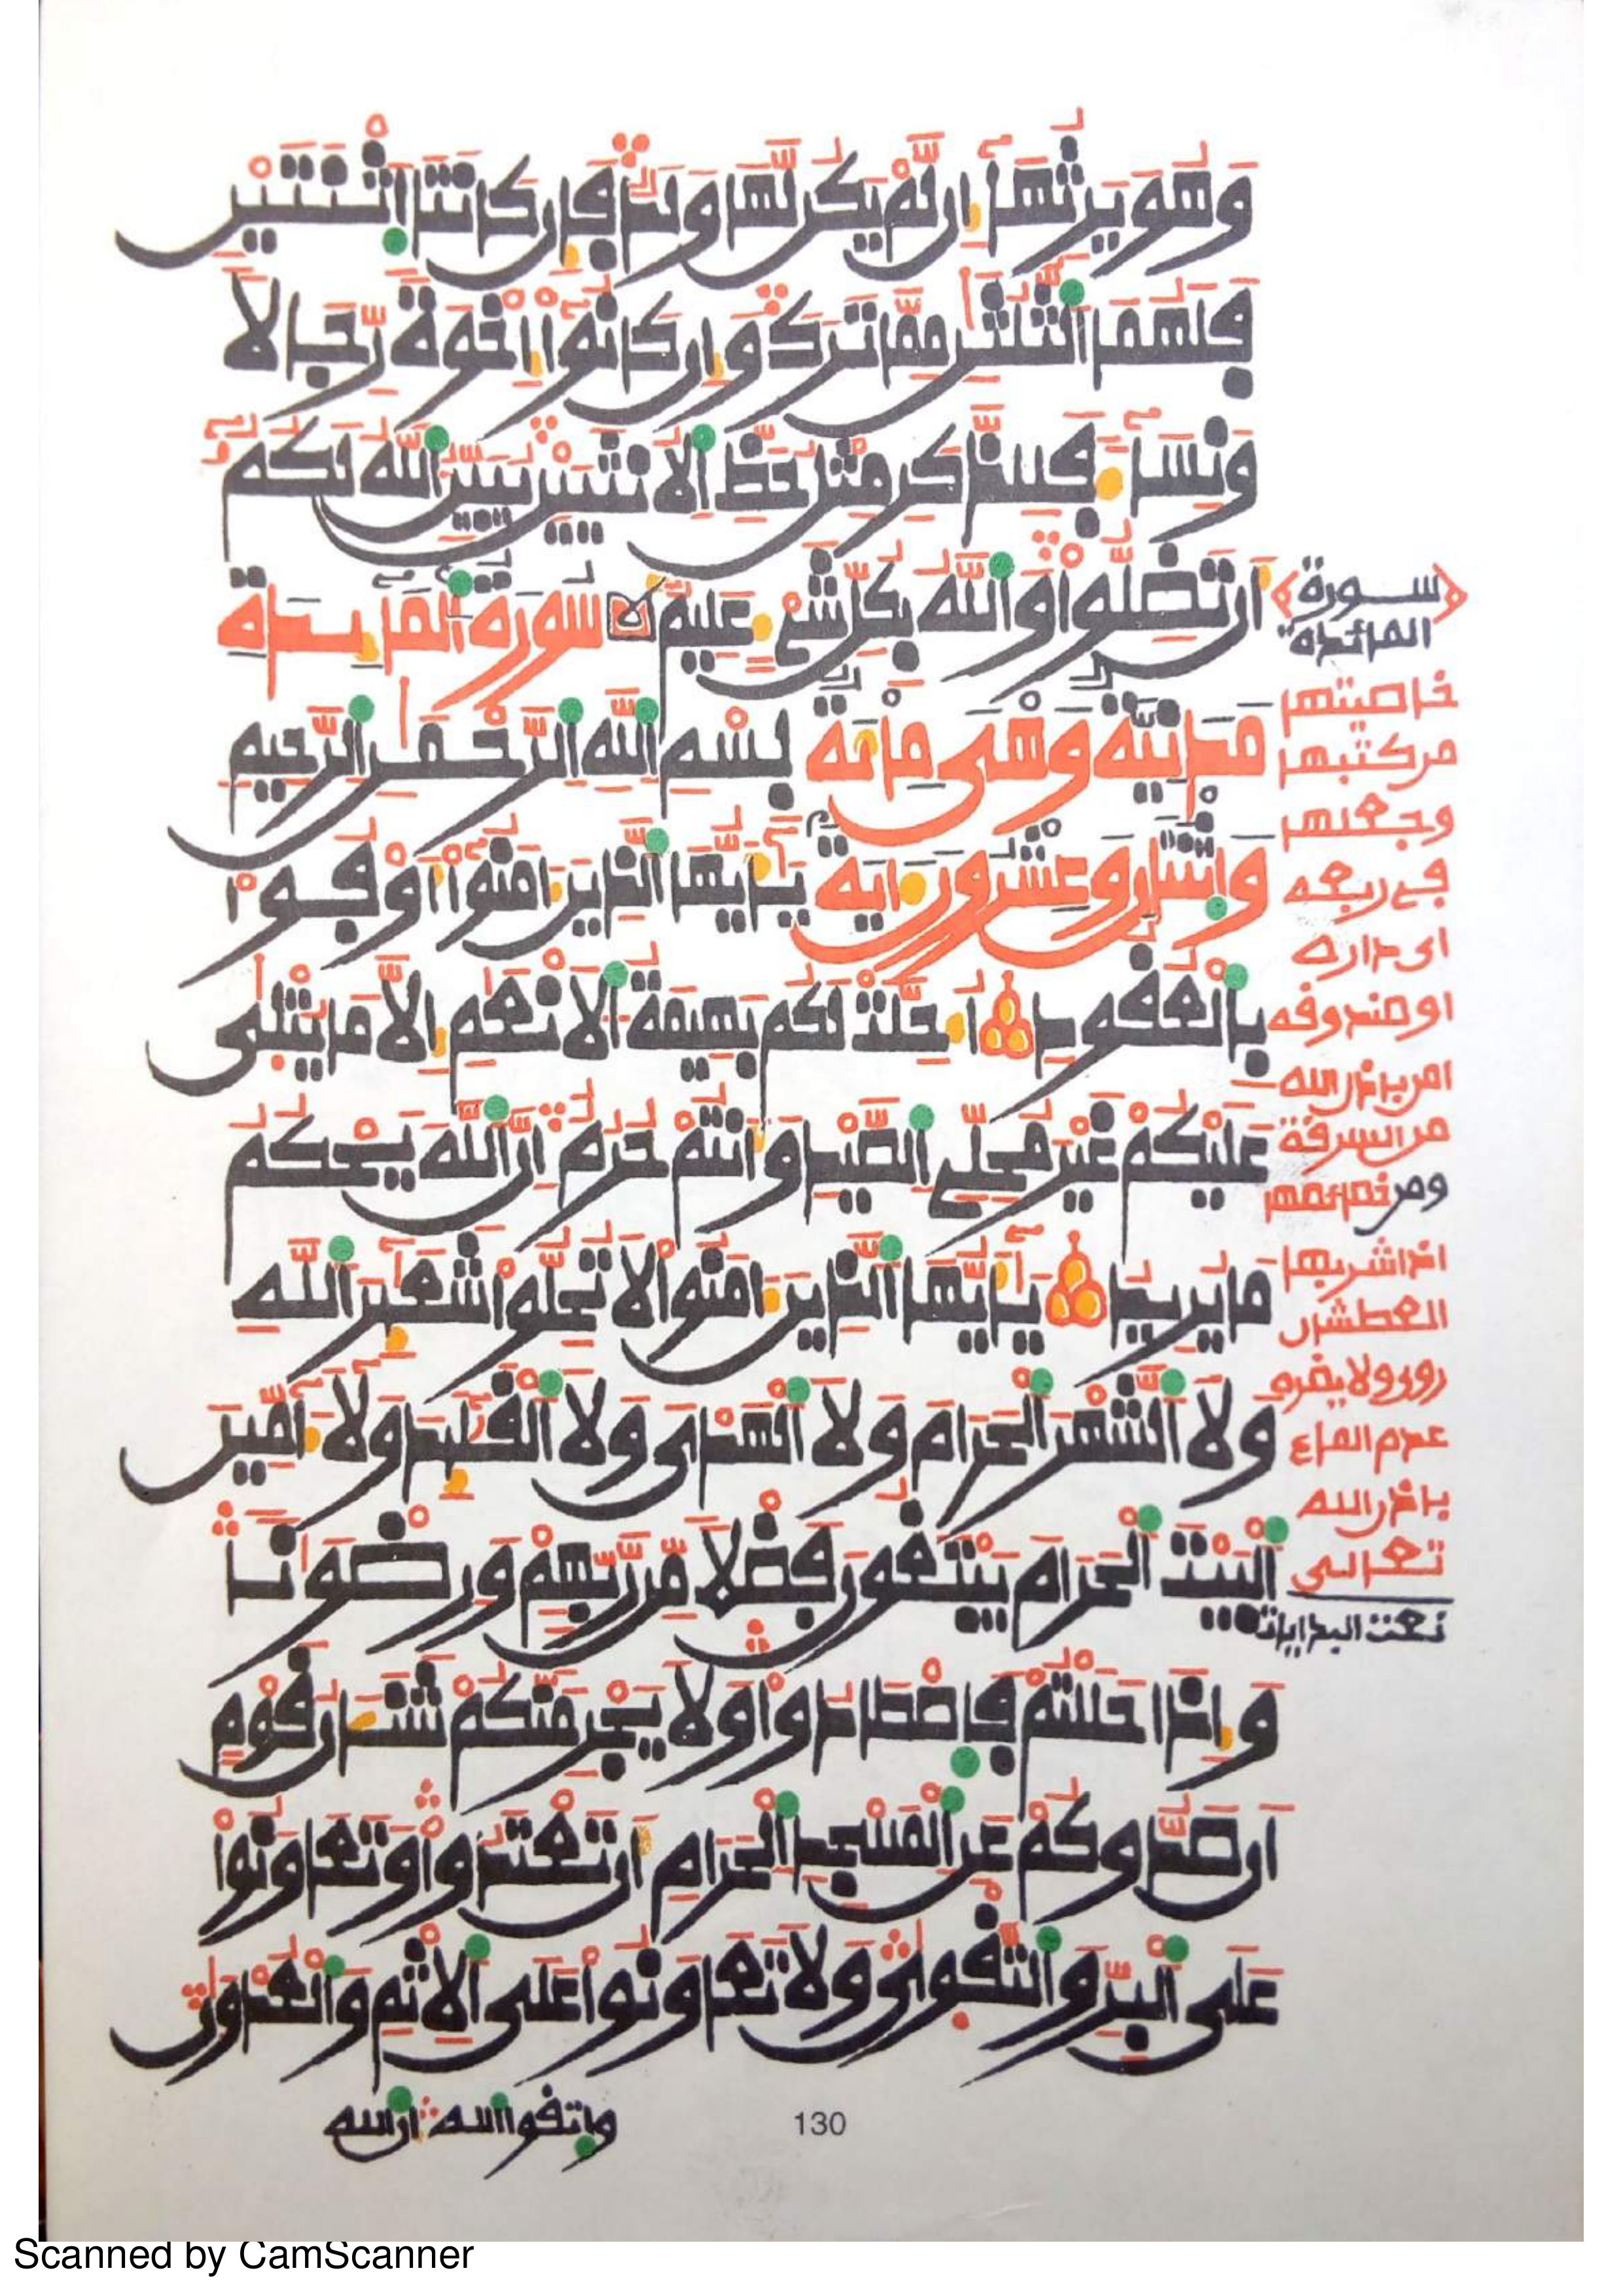 وَهُوَ يَرِثُهَا إِن لَّمْ يَكُن لَّهَا وَلَدٌ فَإِن كَانَتَا اَثْنَتَيْنِ
فَلَهُمَا اَلثُّلُثَٰنِ مِمَّا تَرَكَ وَإِن كَانُوٓاْ إِخْوَةً رِّجَالًا
وَنِسَآءً فَلِلذَّكَرِ مِثْلُ حَظِّ اِلْأُنثَيَيْنِ يُبَيِّنُ اُللَّهُ لَكُمُۥٓ
أَن تَضِلُّواْ وَاللَّهُ بِكُلِّ شَيْءٍ عَلِيمٌ سُورَةُ اُلْمَآئِدَةِ
مَدَنِيَّةٌ وَهْيَ مِائَةٌ بِسْمِ اِللَّهِ اِلرَّحْمَٰنِ اِلرَّحِيمِ
وَاثْنَانِ وَعِشْرُونَ ءَايَةً يَٰٓأَيُّهَا اَلذِينَ ءَامَنُوٓاْ أَوْفُواْ
بِالْعُقُودِ أُحِلَّتْ لَكُم بَهِيمَةُ اُلْأَنْعَٰمِ إِلَّا مَا يُتْلَىٰ
عَلَيْكُمْ غَيْرَ مُحِلِّي اِلصَّيْدِ وَأَنتُمْ حُرُمٌ إِنَّ اَللَّهَ يَحْكُمُ
مَا يُرِيدُ يَٰٓأَيُّهَا اَلذِينَ ءَامَنُواْ لَا تُحِلُّواْ شَعَٰٓئِرَ اَللَّهِ
وَلَا اَلشَّهْرَ اَلْحَرَامَ وَلَا اَلْهَدْيَ وَلَا اَلْقَلَٰٓئِدَ وَلَآ ءَآمِّينَ
اَلْبَيْتَ اَلْحَرَامَ يَبْتَغُونَ فَضْلًا مِّن رَّبِّهِمْ وَرِضْوَٰنًا
وَإِذَا حَلَلْتُمْ فَاصْطَادُواْ وَلَا يَجْرِمَنَّكُمْ شَنَـَٔانُ قَوْمٍ
أَن صَدُّوكُمْ عَنِ اِلْمَسْجِدِ اِلْحَرَامِ أَن تَعْتَدُواْ وَتَعَاوَنُواْ
عَلَى اَلْبِرِّ وَالتَّقْوَىٰ وَلَا تَعَاوَنُواْ عَلَى اَلْإِثْمِ وَالْعُدْوَٰنِ
واتقوا الله ان الله
130
سورة
المائدة
خاصيتها
من كتبها
وجعلها
في ربعه
اى داره
او صندوقه
امن باذن الله
من السرقة
ومن خصائصها
اذا شربها
العطشان
روى ولا يضره
عدم الماء
باذن الله
تعالى
نعت البدايات
Scanned by CamScanner